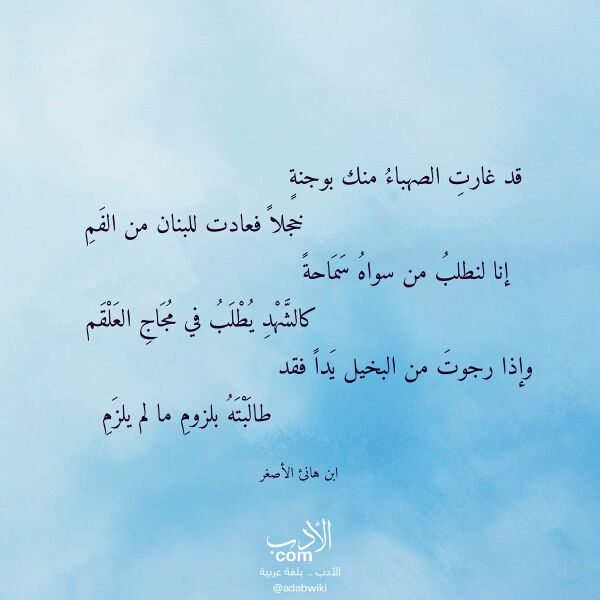 قد غارتِ الصهباءُ منك بوجنةٍ
خجلاً فعادت للبنان من الفَمِ
إنا لنطلبُ من سواهُ سَمَاحةً
كالشَّهْدِ يُطْلَبُ في مُجَاجِ العَلْقَم
وإذا رجوتَ من البخيل يَداً فقد
طالَبْتَهُ بلزومِ ما لم يلزَمِ
ابن هانئ الأصغر
الأدب
com
الأدب .. بلغة عربية
@adabwiki